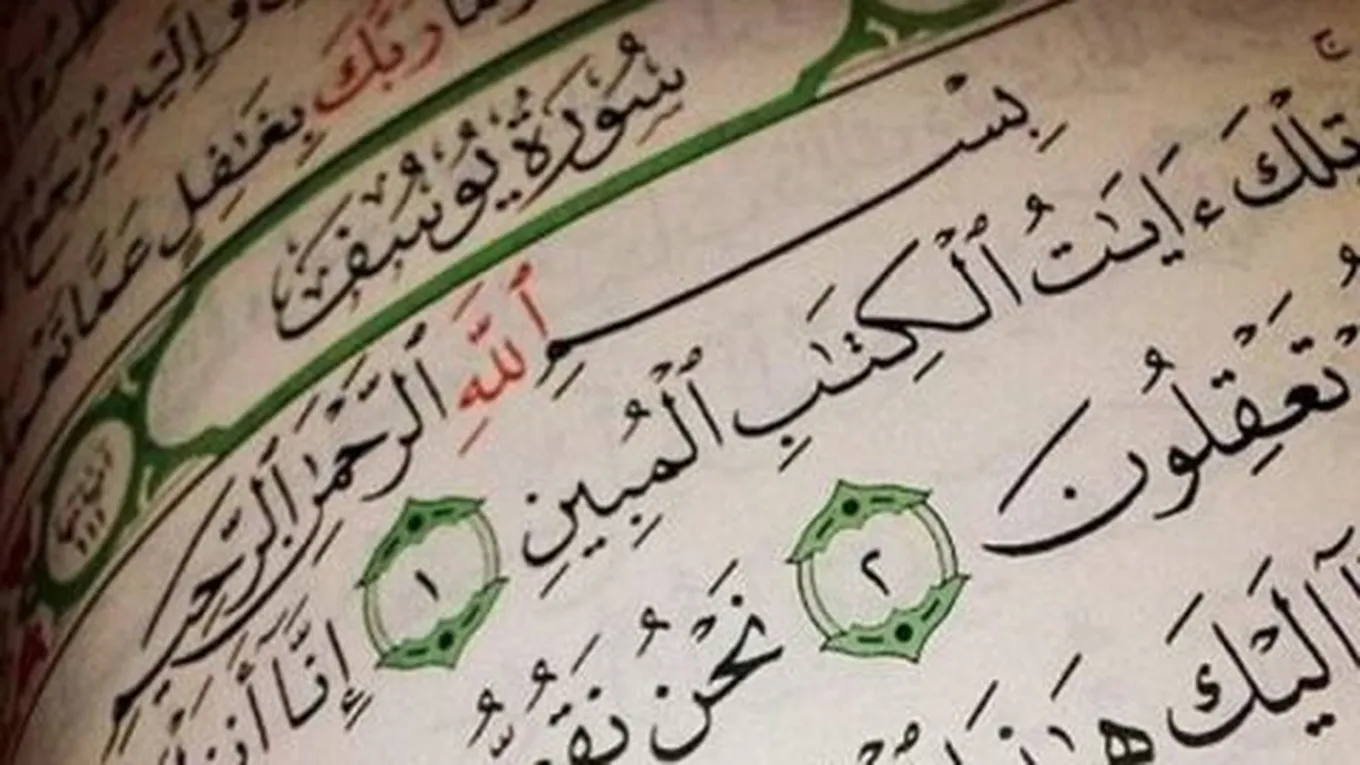 وَإِلَيْهِ يُرْجَعُ
رَبُّكَ بِغَٰفِلٍ عَمَّا تَعْمَ
سُورَةُ يُوسُفَ
بِسْمِ ٱللَّهِ ٱلرَّحْمَٰنِ ٱلرَّحِيمِ
تِلْكَ ءَايَٰتُ ٱلْكِتَٰبِ ٱلْمُبِينِ ١ إِنَّآ أَنزَ
تَعْقِلُونَ ٢ نَحْنُ نَقُصُّ
إِلَيْكَ هَٰذَا